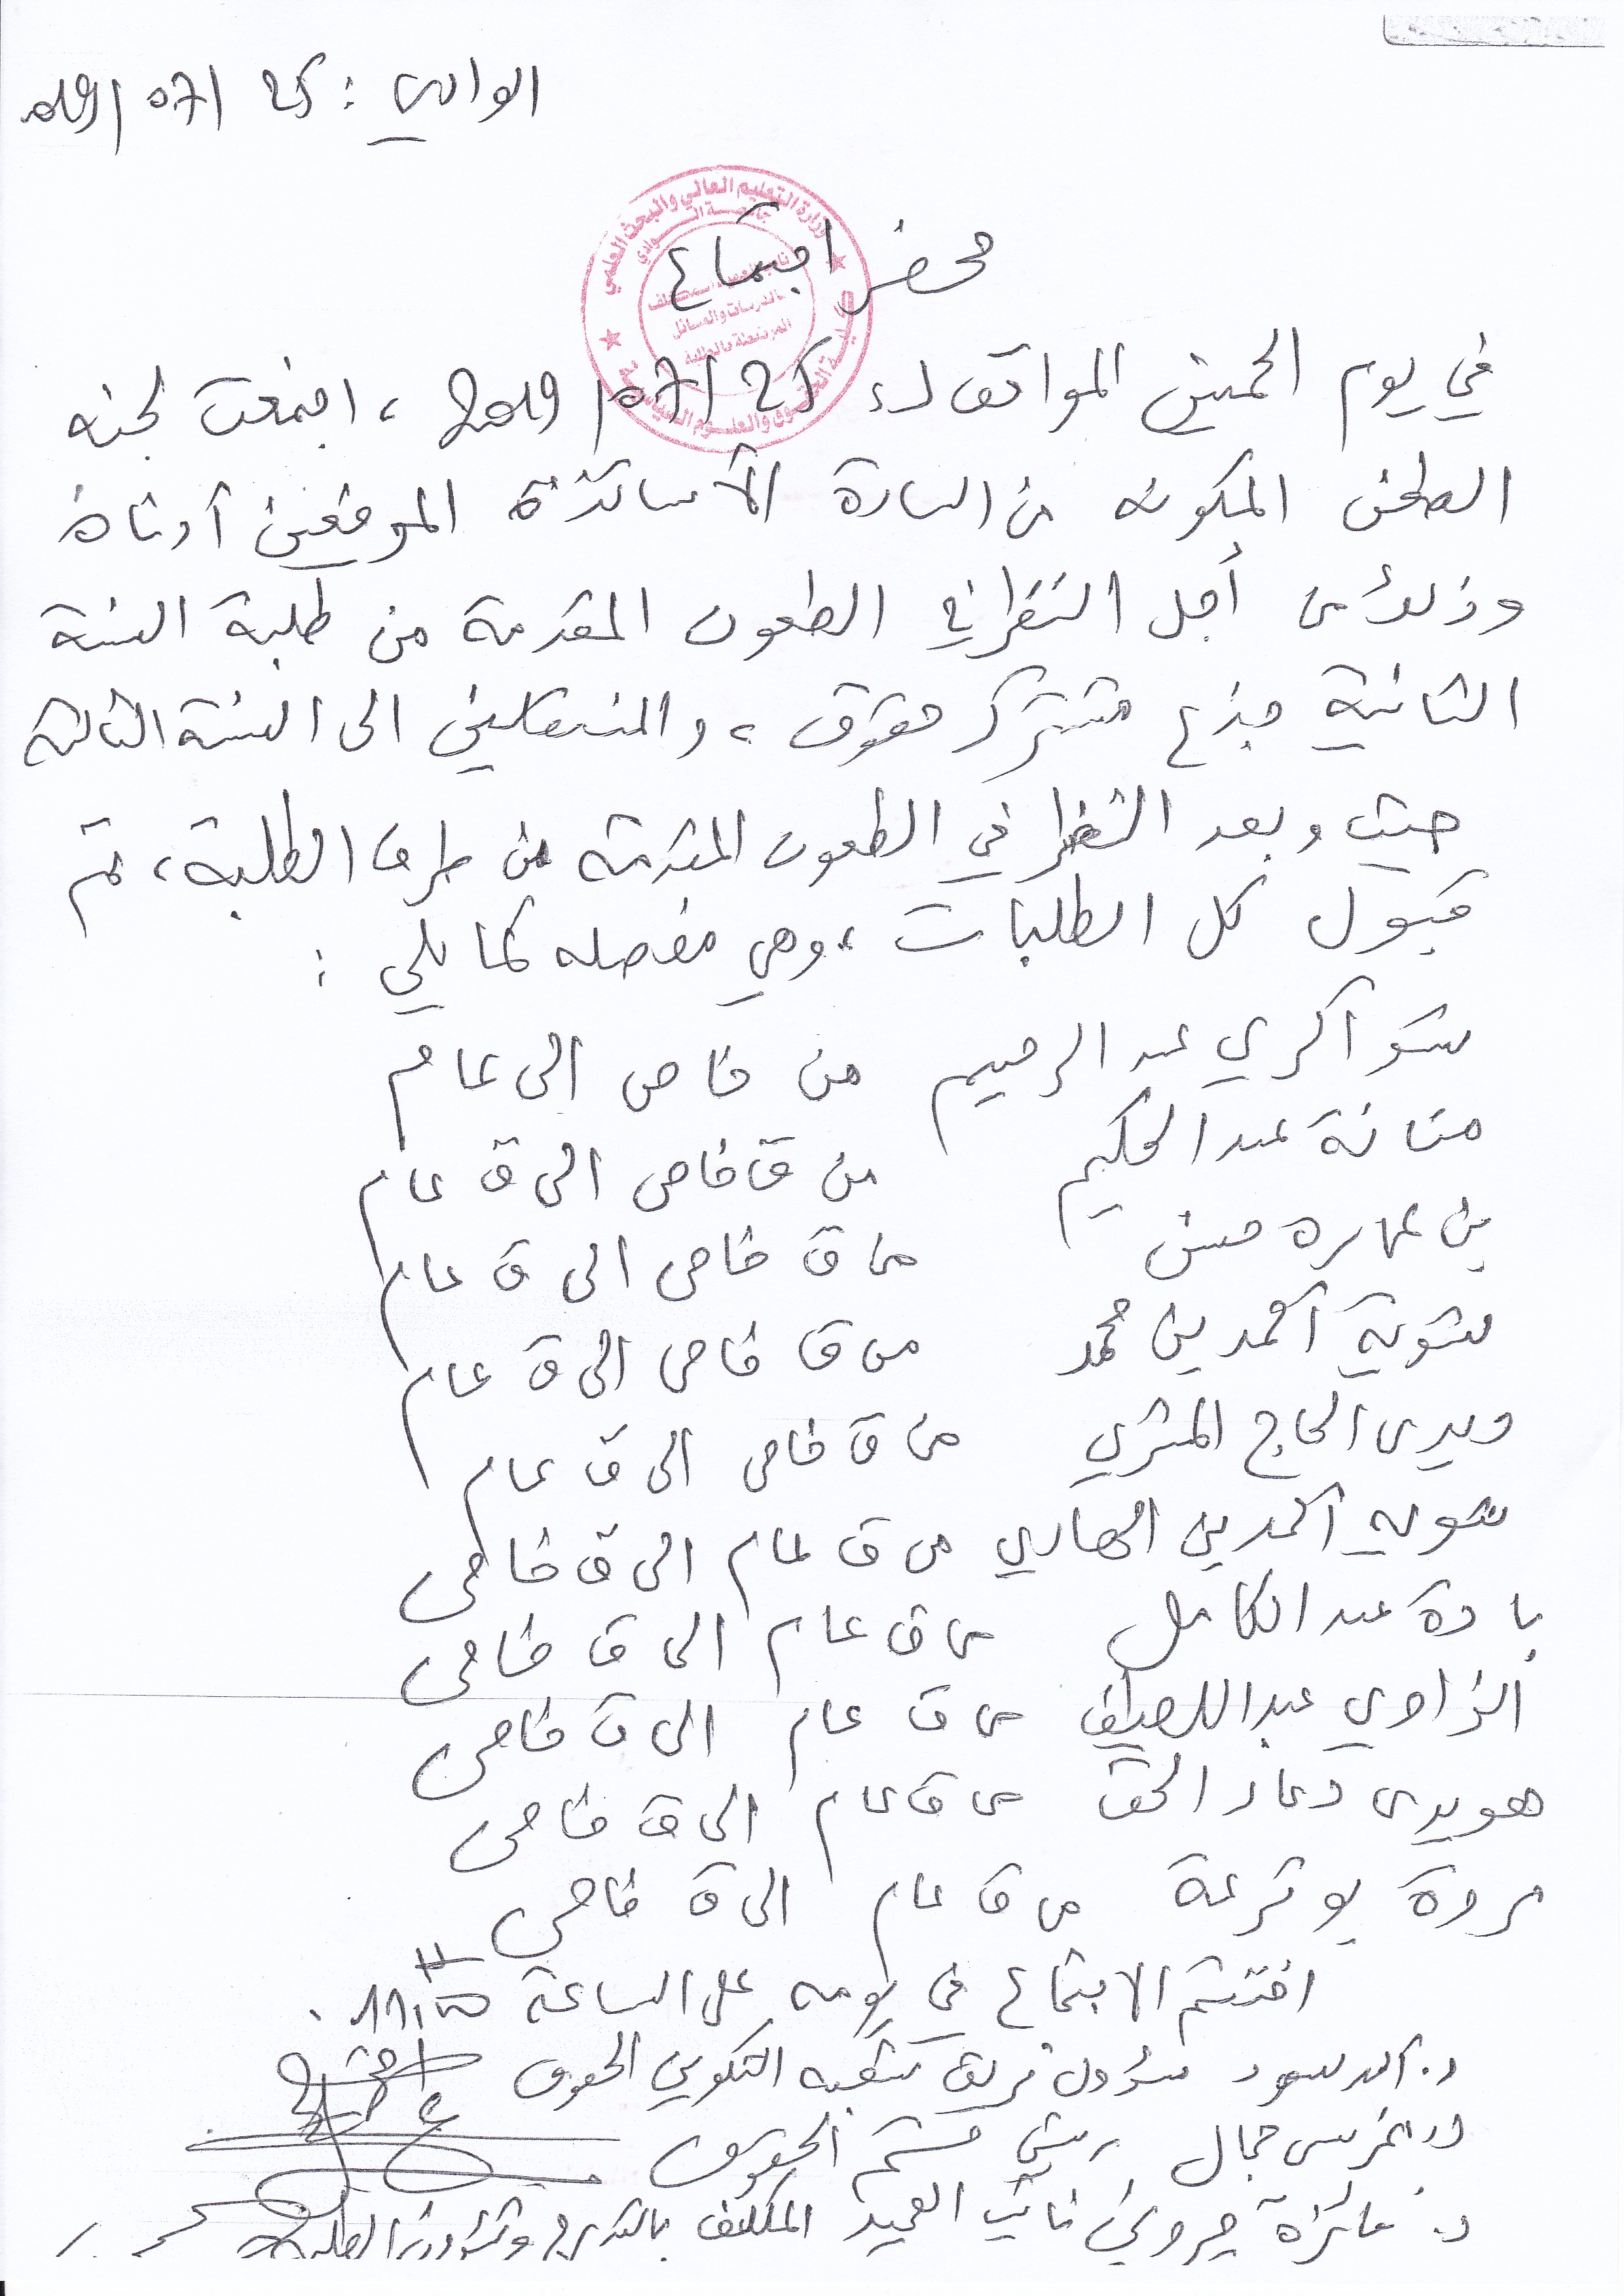 الوادي : 25 /07/ 2019
محضر اجتماع
وزارة التعليم العالي والبحث العلمي
جامعة الوادي
في يوم الخميس الموافق لـ 25 /07/ 2019 ، اجتمعت لجنة
الطعن المكونة من السادة الأساتذة الموقعين أدناه
وذلك من أجل النظر في الطعون المقدمة من طلبة السنة
الثانية جذع مشترك حقوق ، والمنتقلين الى السنة الثالثة
حيث وبعد النظر في الطعون المقدمة من طرف الطلبة ، تم
قبول كل الطلبات ، وهي مفصلة كما يلي :
شواكري عبد الرحيم من خاص الى عام
منانة عبد الحكيم من ق خاص الى ق عام
بن عمارة حسن من ق خاص الى ق عام
شوية أحمد بن محمد من ق خاص الى ق عام
الحاج من ق خاص الى ق عام
شوية أحمد بن الهادي من ق عام الى ق خاص
بادة عبد الكامل من ق عام الى ق خاص
الزاوي عبد اللطيف من ق عام الى ق خاص
هويدي دعاء الحق من ق عام الى ق خاص
مروة بوترعة من ق عام الى ق خاص
اختتم الاجتماع في يومه على الساعة 11:00 .
د. مسؤول فريق شعبة التكوين الحقوق
د. جمال رئيس قسم الحقوق
د. فائزة جروني نائب العميد المكلف بالتدرج وشؤون الطلبة